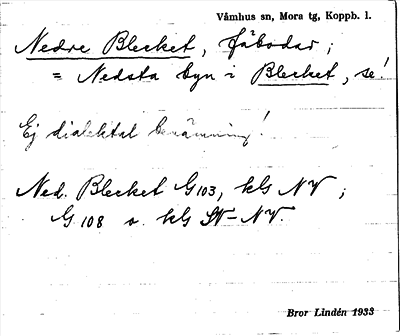 Våmhus sn, Mora tg, Koppb. l.
Nedre Blecket, fäbodar;
= Nedsta byn i Blecket, se!
Ej dialektal benämning!
Ned. Blecket G103, kls NV;
G108 o. kls SV–NV.
Bror Lindén 1933